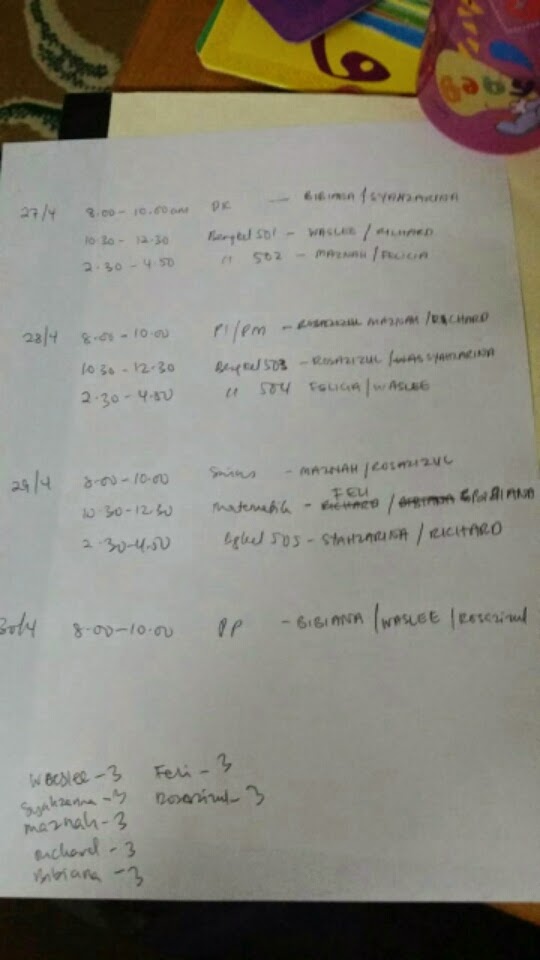 27/4 8.00 - 10.00am DK — BIBIANA / SYAHZARINA
10.30 - 12.30 Bengkel 501 - WASLEE / RICHARD
2.30 - 4.30 " 502 - MAZNAH / FELICIA
28/4 8.00 - 10.00 PI/PM - ROSAZIZUL MAZNAH / RICHARD
10.30 - 12.30 Bengkel 503 - ROSAZIZUL / WAS SYAHZARINA
2.30 - 4.30 " 504 FELICIA / WASLEE
29/4 8.00 - 10.00 Sains - MAZNAH / ROSAZIZUL
FELI
10.30 - 12.30 Matematik - RICHARD / BIBIANA BIBIANA
2.30 - 4.30 Bgkel 505 - SYAHZARINA / RICHARD
30/4 8.00 - 10.00 PP - BIBIANA / WASLEE / Rosazizul
Waslee - 3 Feli - 3
Syahzarina - 3 Rosazizul - 3
Maznah - 3
Richard - 3
Bibiana - 3